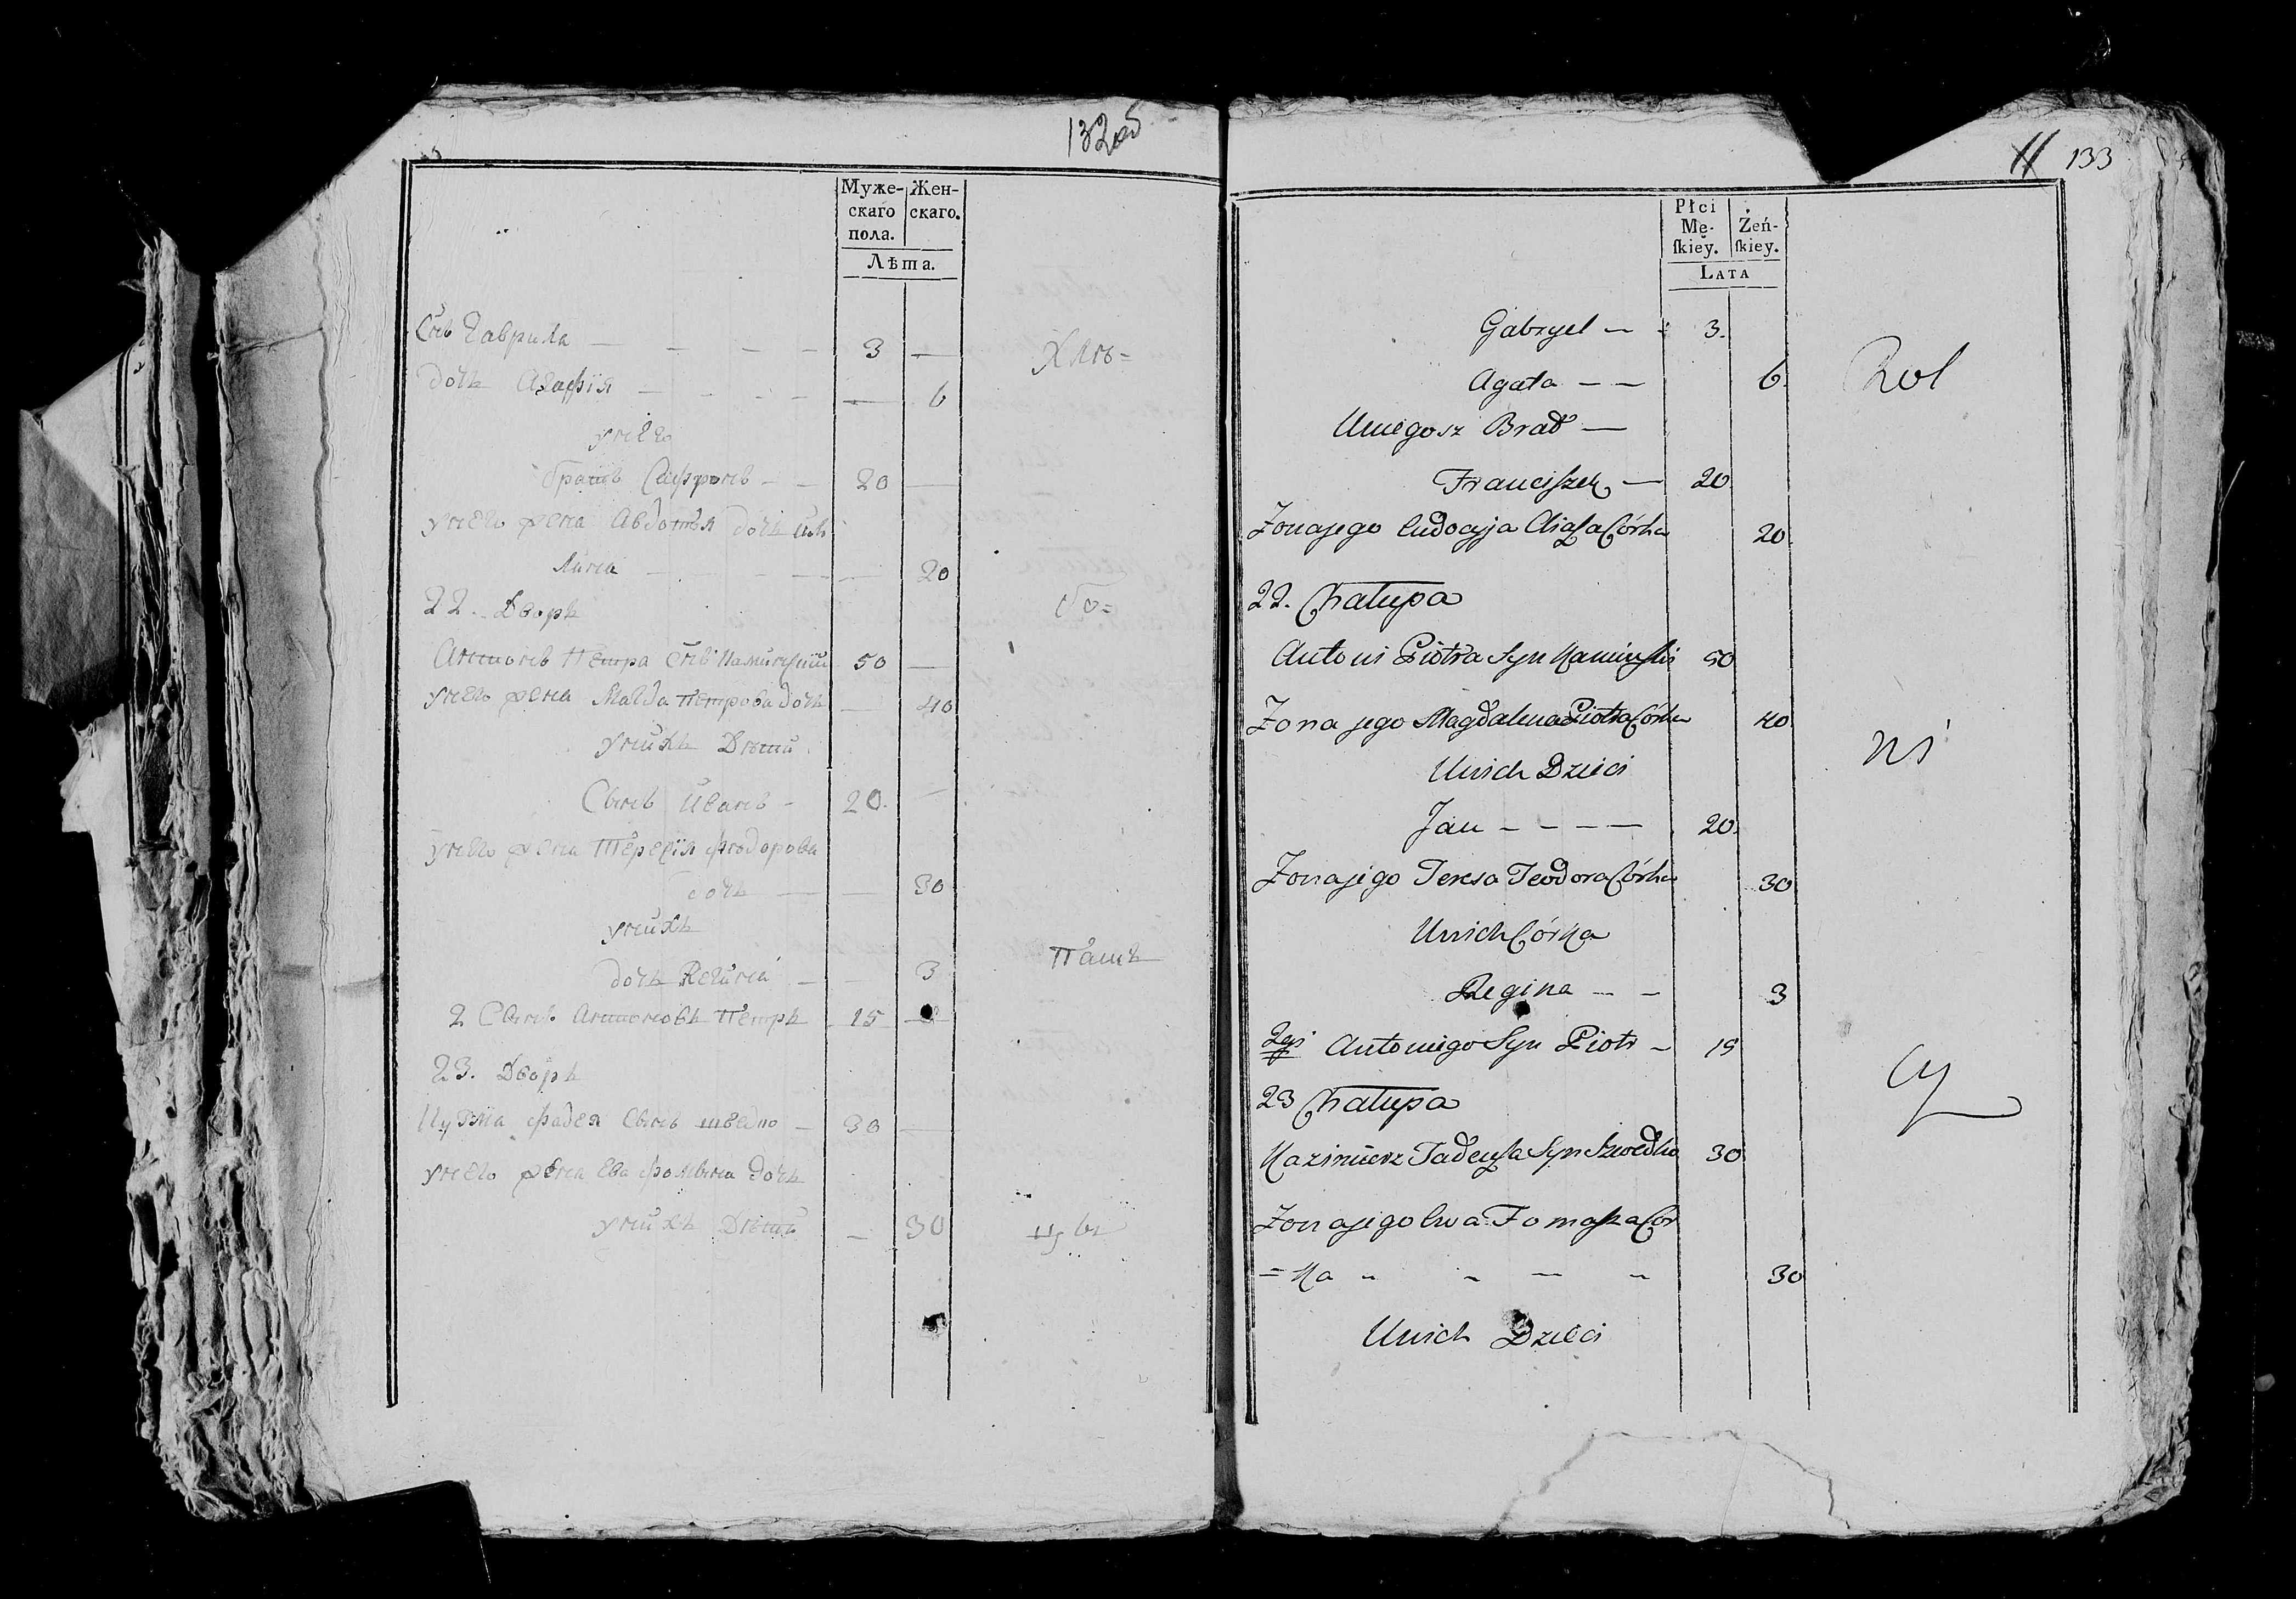 132об
Муже-
скаго
пола.
Жен-
скаго.
Лѣта.
Снъ Гаврила — — — — 3 —
дочь Агафія — — — — — 6
Хлѣ=
унего
братъ — — 20 —
унего жена Авдотья дочь
20
22. Дворъ
бо=
Антонъ Петра Снъ Каминскій 50 —
унего жена Магда Петрова дочь — 40
унихъ Дѣти
Сынъ Иванъ — 20. —
унего жена Терезія Ѳедорова
дочь — — 30
унихъ
дочь Регина — — 3
Пашъ
2 Сынъ Антоновъ Петръ 15 —
23. Дворъ
Кузма Фадея Сынъ шведко — 30 —
унего жена Ева Фомина дочь
унихъ Дѣти — 30
цы
11 133
Płci
Mę-
ſkiey.
Żeń-
ſkiey.
LATA
Gabryel — 3.
Agata — — 6.
Rol
Uniegosz Brat —
Franciszek — 20
Zonajego Eudocyja Córka 20
22. Chałupa
Antoni Piotra Syn Kaminski 50
Zona jego Magdalena Piotra Córka 40
ni
Unich Dzieci
Jan — — — — 20.
Zonajego Teresa Teodora Córka 30
Unich Córka
Regina — — 3
2gi Antoniego Syn Piotr — 15
cy
23 Chałupa
Kazimierz Tadeusza Syn Szwedko 30
Zonajego Ewa Tomasza Cór
= ka — — — — 30
Unich Dzieci